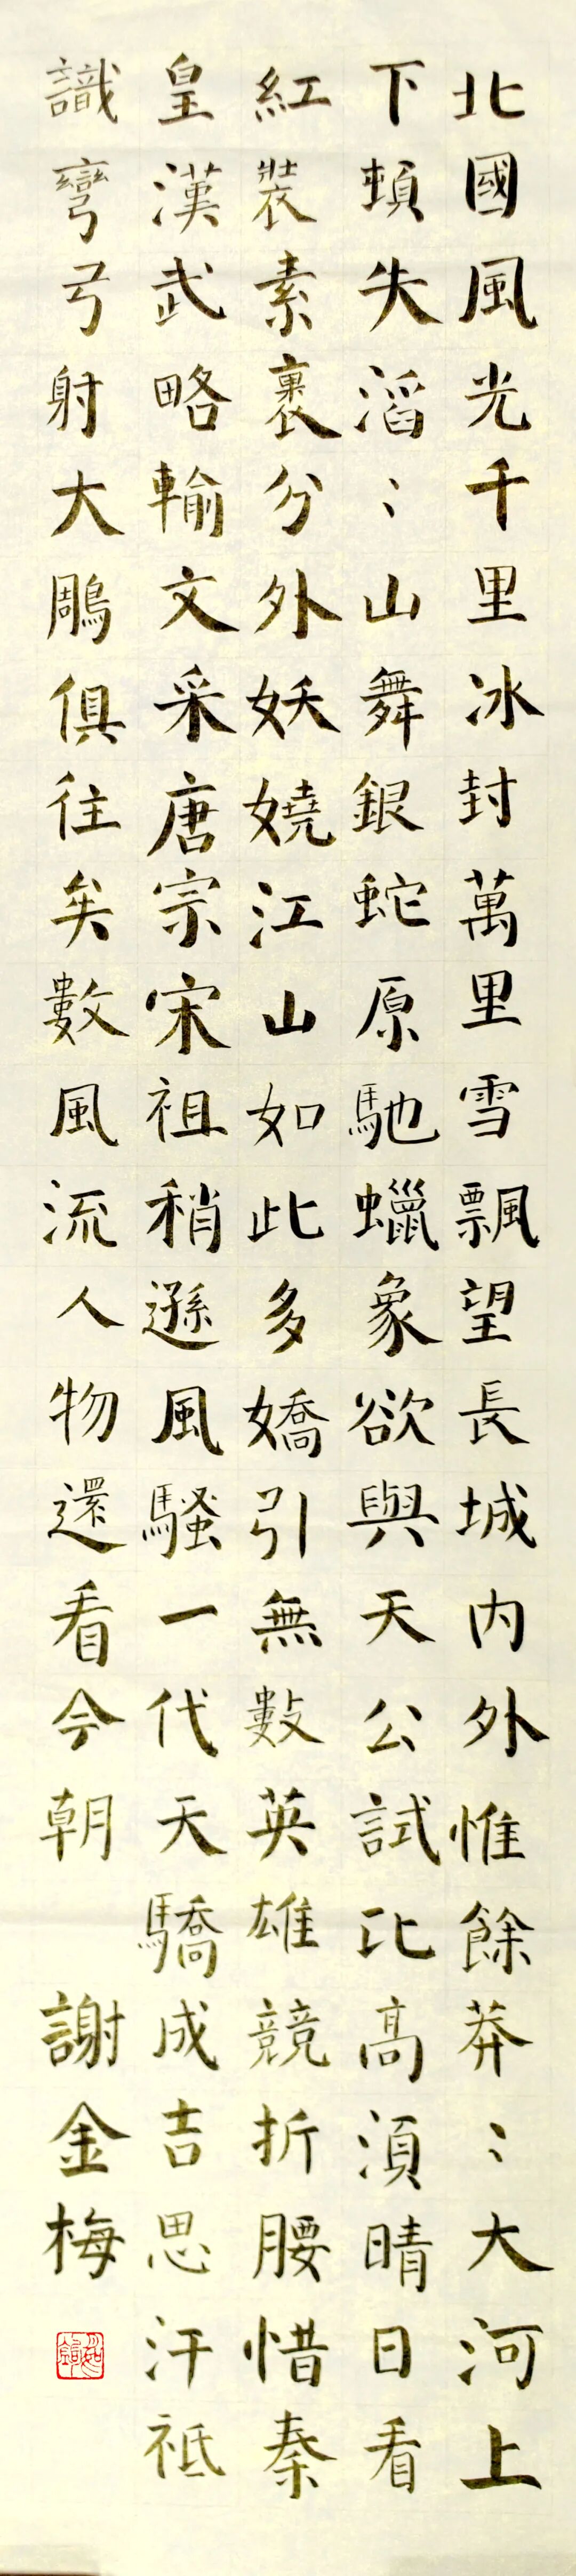 北國風光千里冰封萬里雪飄望長城内外惟餘莽〻大河上
下頓失滔〻山舞銀蛇原馳蠟象欲與天公試比高須晴日看
紅裝素裹分外妖嬈江山如此多嬌引無數英雄競折腰惜秦
皇漢武略輸文采唐宗宋祖稍遜風騷一代天驕成吉思汗祗
識彎弓射大鵰俱往矣數風流人物還看今朝
謝金梅